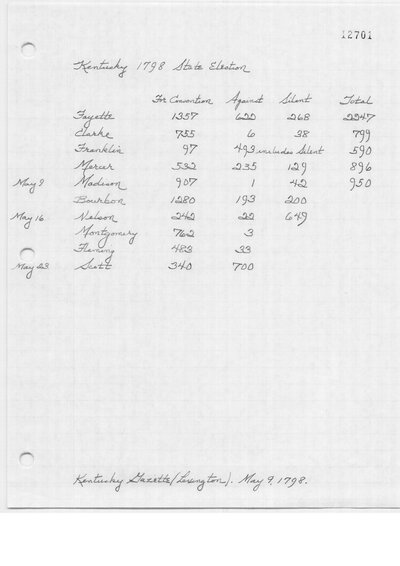 12701
Kentucky 1798 State Election
For Convention Against Silent Total
Fayette 1357 620 268 2247
Clarke 755 6 38 799
Franklin 97 493 includes Silent 590
Mercer 532 235 129 896
May 9 Madison 907 1 42 950
Bourbon 1280 193 200
May 16 Nelson 242 22 649
Montgomery 762 3
Fleming 483 33
May 23 Scott 340 700
Kentucky Gazette (Lexington). May 9, 1798.